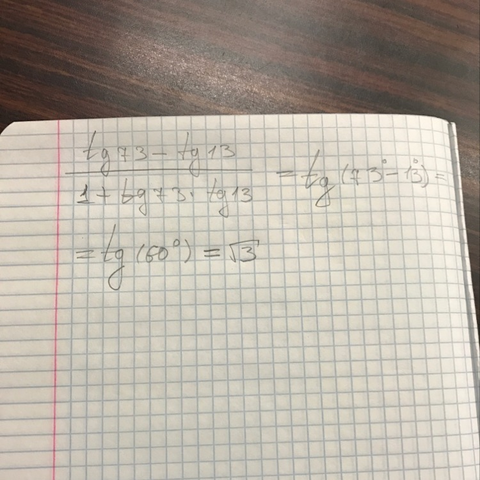 tg73 - tg13
1 + tg73 · tg13
= tg(73° - 13°) =
= tg(60°) = √3